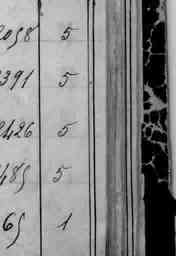 2058 5
3391 5
2426 5
485 5
65 1